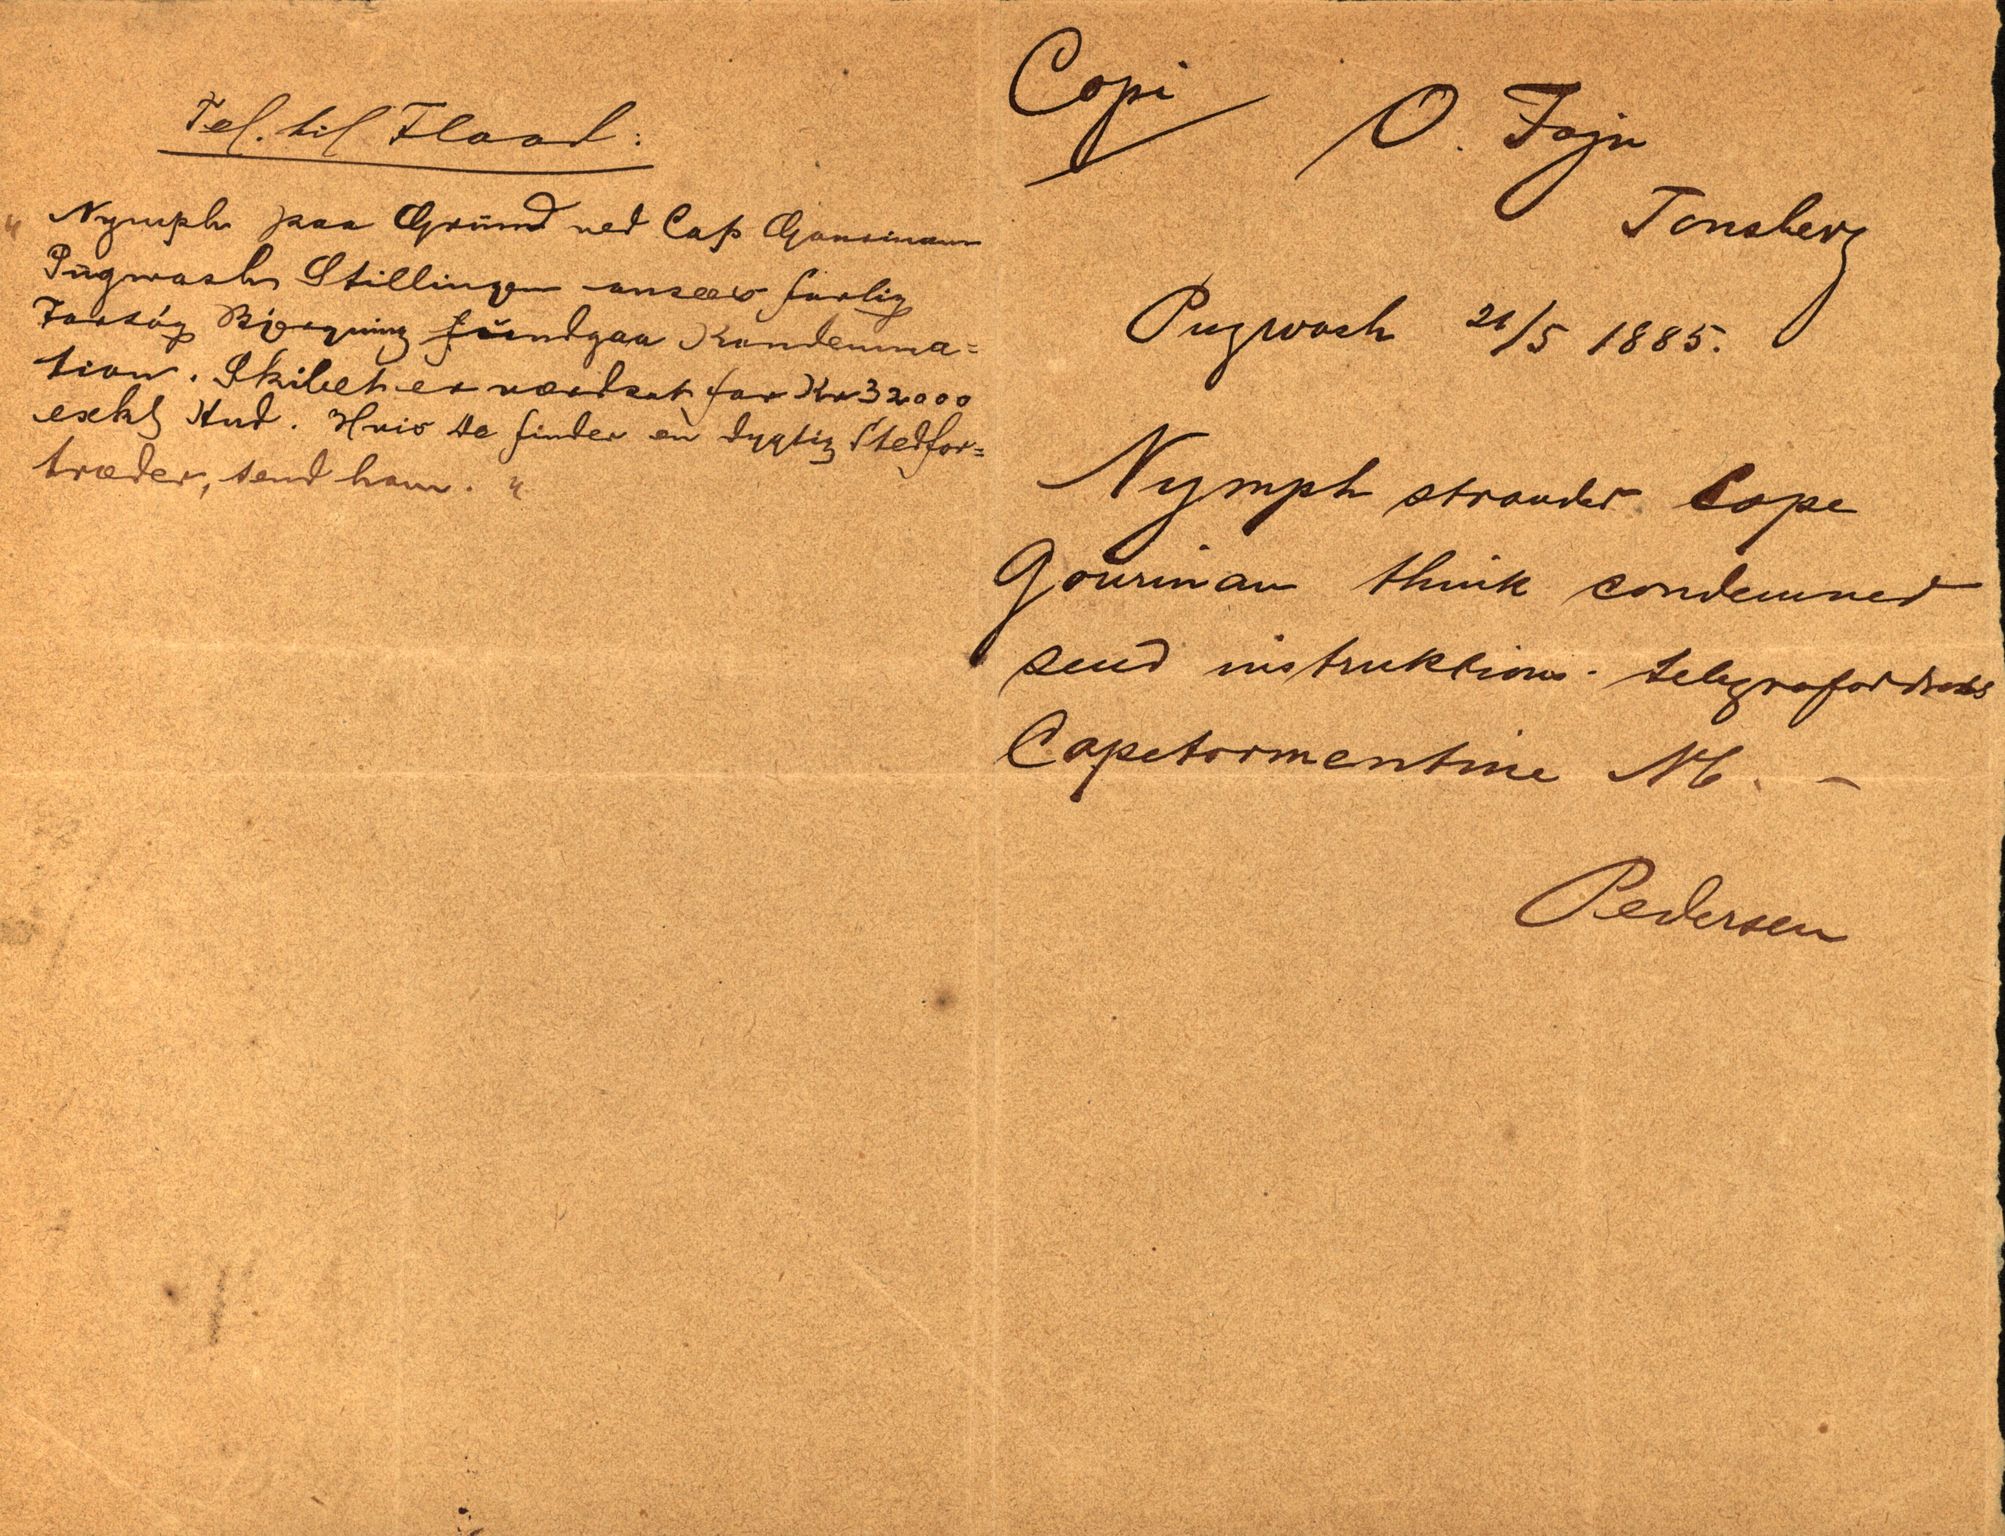 Tel. til Flood:
" Nymph paa Grund ved Cap Gourinau
Pugwash Stillingen ansees farlig
Forsøg Bjergning fundgaa Kondemna=
tion. Skibet er værdsat for Kr 32000
exkl Hud. Hvis De finder en dygtig Stedfor=
træder, send ham. "
Copi
O. Føjn
Tonsberg
Pugwash 21/5 1885.
Nymph strandet Cape
Gourinau think condemned
send instruktions. telegrafaddress
Capetormentine NB. -
Pedersen